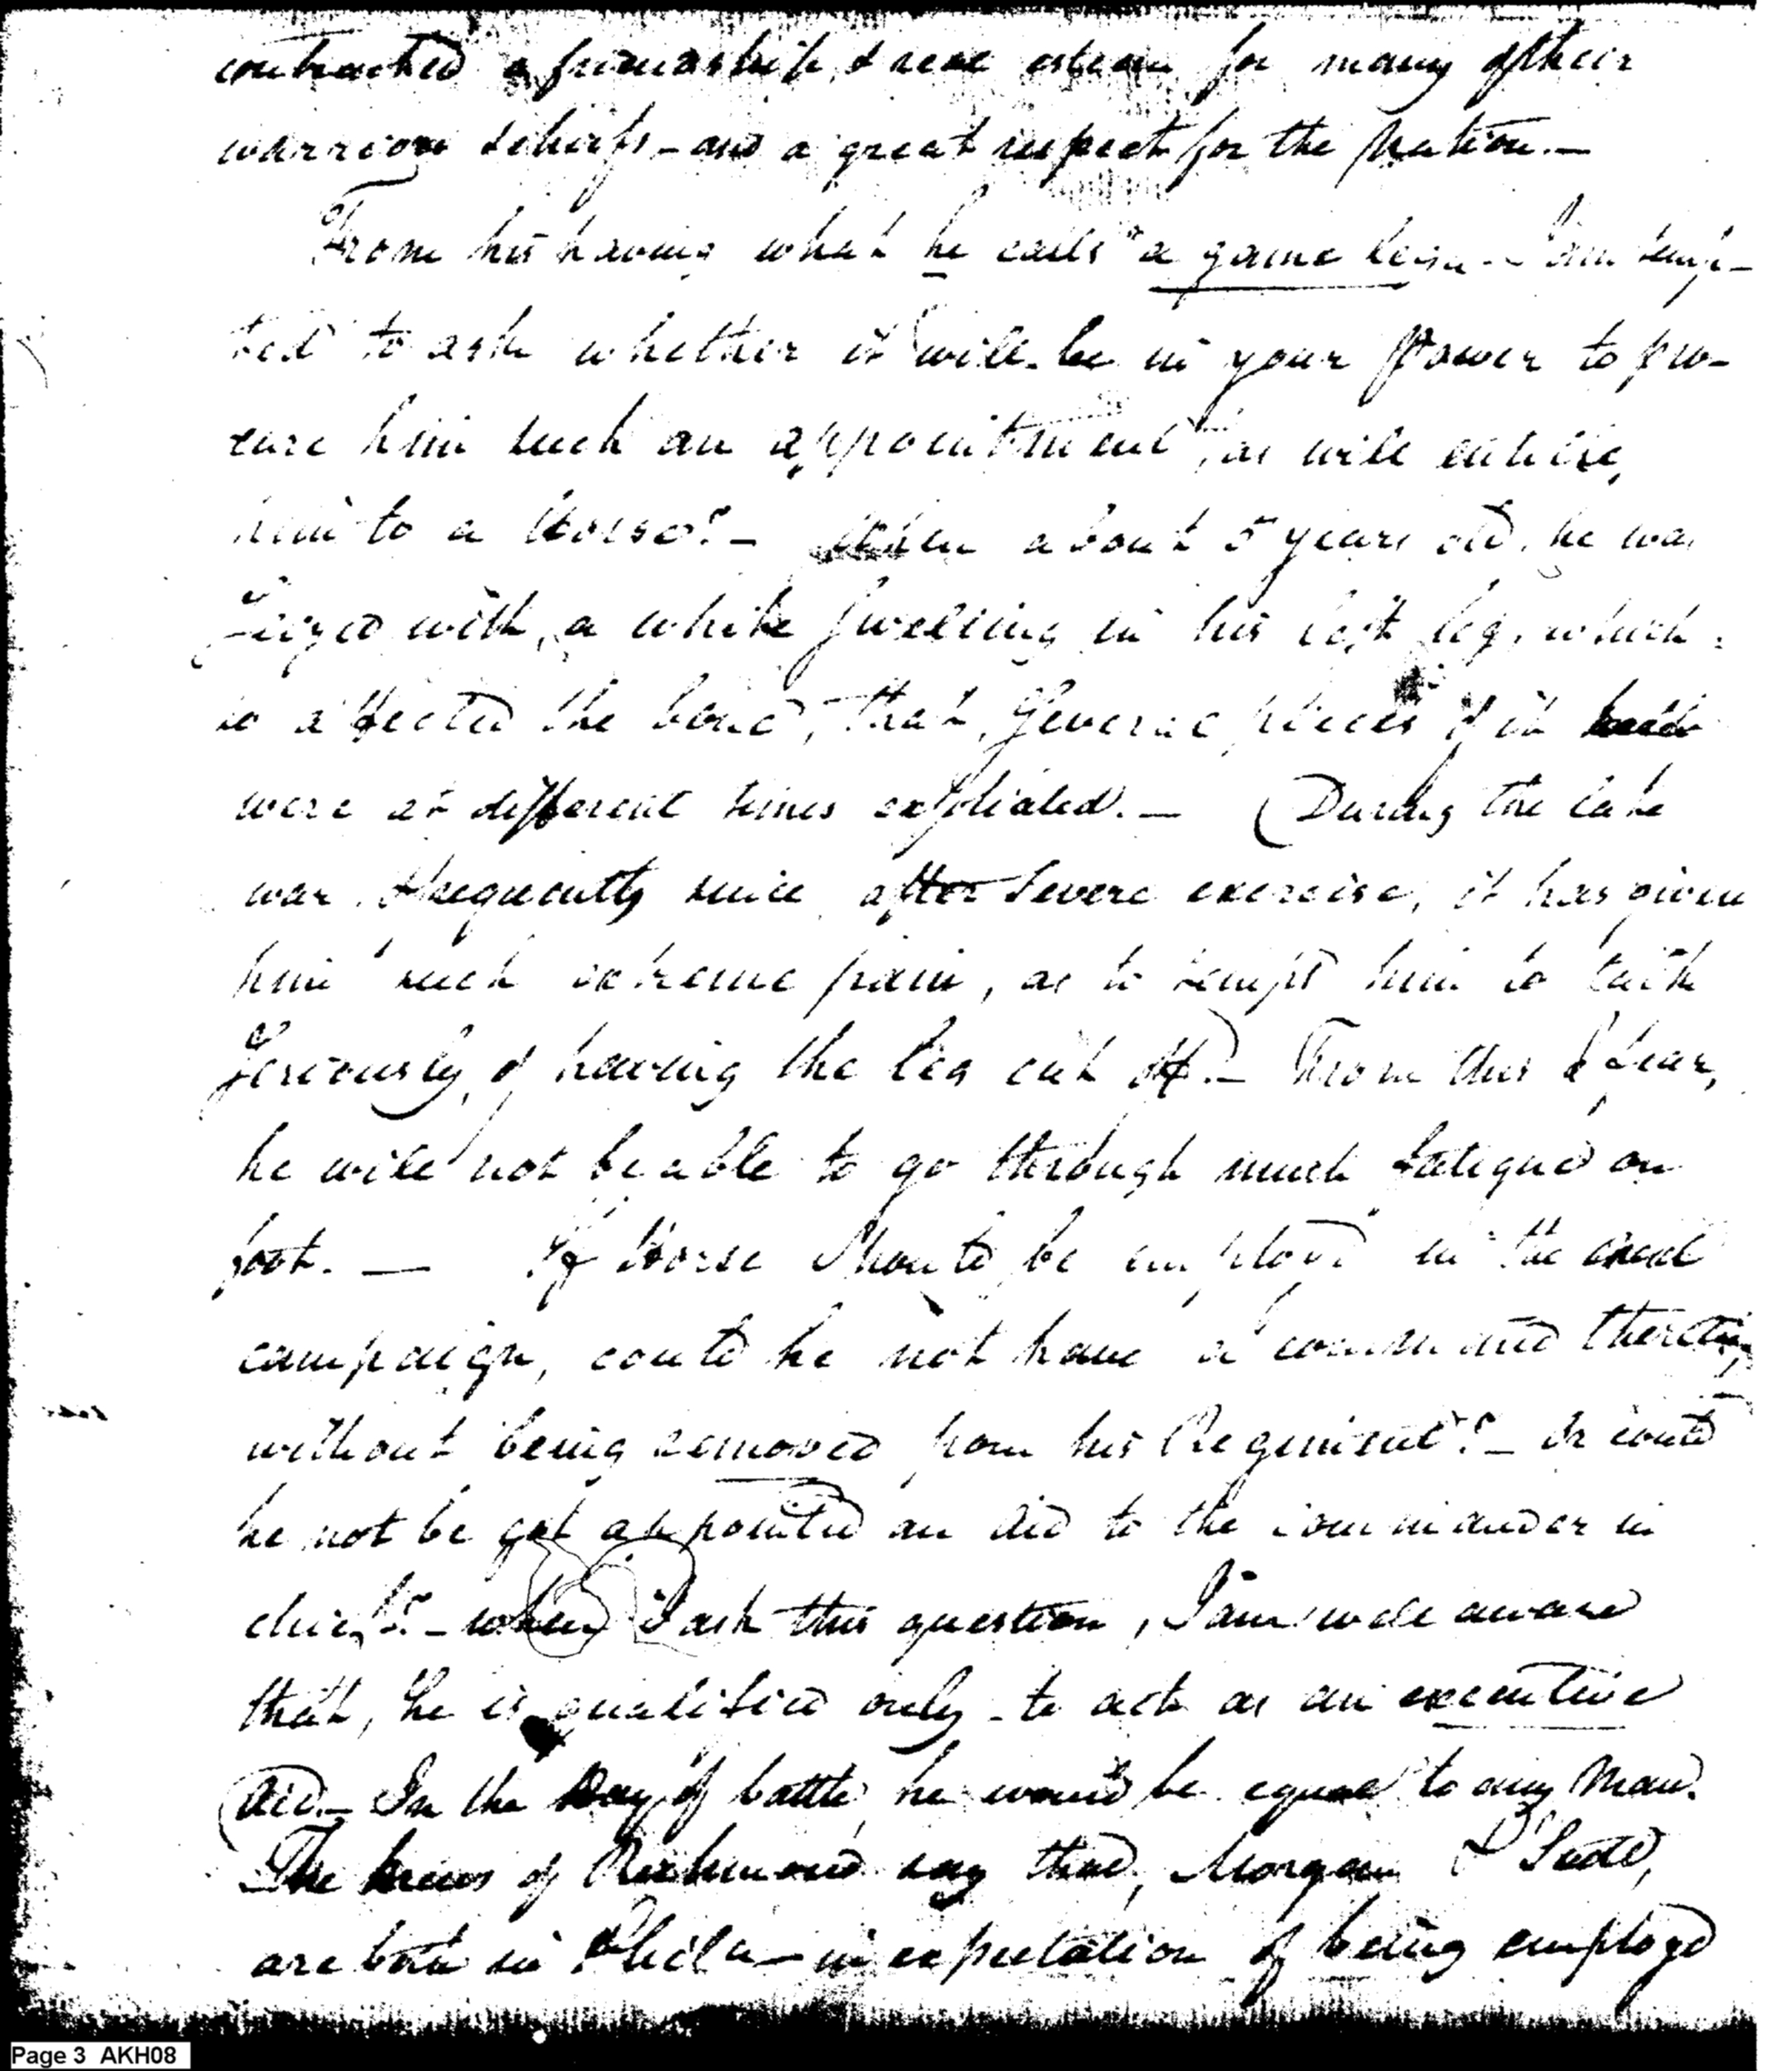 contracted a friendship, & real esteem for many of their
warriors & chiefs - and a great respect for the Nation. -
From his having what he calls "a game leg" - I am temp-
ted to ask whether it will be in your power to pro-
cure him such an appointment, as will entitle,
him to a Horse? - When about 5 years old, he was
Seized with, a white Swelling in his left leg, which
so affected the bone, that, Several pieces of it
were at different times exfoliated. - (During the late
war & frequently since after Severe exercise, it has given
him such extreme pain, as to tempt him to talk
Seriously, of having the leg cut off.) - From this I fear,
he will not be able to go through much fatigue on
foot. - If Horse should be employd in the next
campaign, could he not have a command therein,
without being removed from his Regiment? - Or could
he not be got appointed an Aid to the commander in
chief? - when I ask this question, I am well aware
that, he is qualified only - to act as an executive
Aid. - In the Day of battle, he would be equal to any Man.
The news of Richmond say that, Morgan &
are both in Phila - in expectation of being employd
Page 3 AKH08